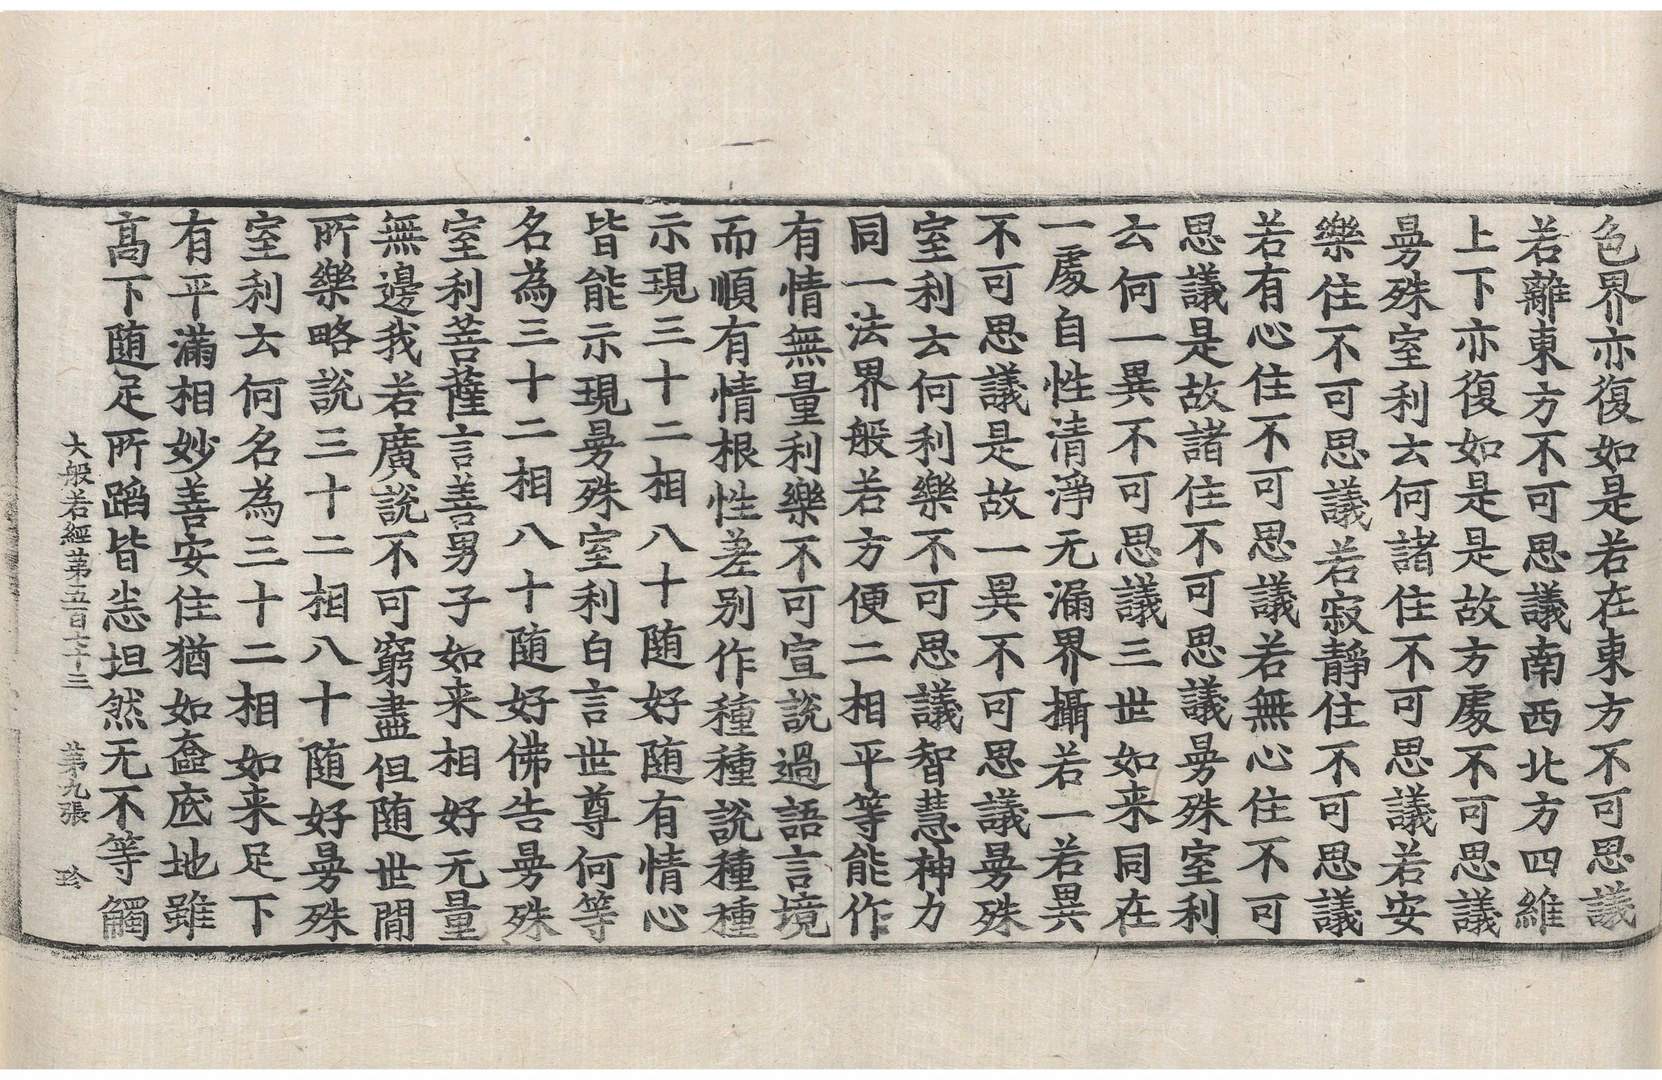 色界亦復如是若在東方不可思議
若離東方不可思議南西北方四維
上下亦復如是是故方處不可思議
曼殊室利云何諸住不可思議若安
樂住不可思議若寂靜住不可思議
若有心住不可思議若無心住不可
思議是故諸住不可思議曼殊室利
云何一異不可思議三世如来同在
一處自性清淨无漏界攝若一若異
不可思議是故一異不可思議曼殊
室利云何利樂不可思議智慧神力
同一法界般若方便二相平等能作
有情無量利樂不可宣說過語言境
而順有情根性差别作種種說種種
示現三十二相八十随好随有情心
皆能示現曼殊室利白言世尊何等
名為三十二相八十随好佛告曼殊
室利菩薩言善男子如来相好无量
無邊我若廣說不可窮盡但随世間
所樂略說三十二相八十随好曼殊
室利云何名為三十二相如来足下
有平滿相妙善安住猶如奩底地雖
高下随足所蹈皆悉坦然无不等觸
大般若經第五百七十三 第九張 珎